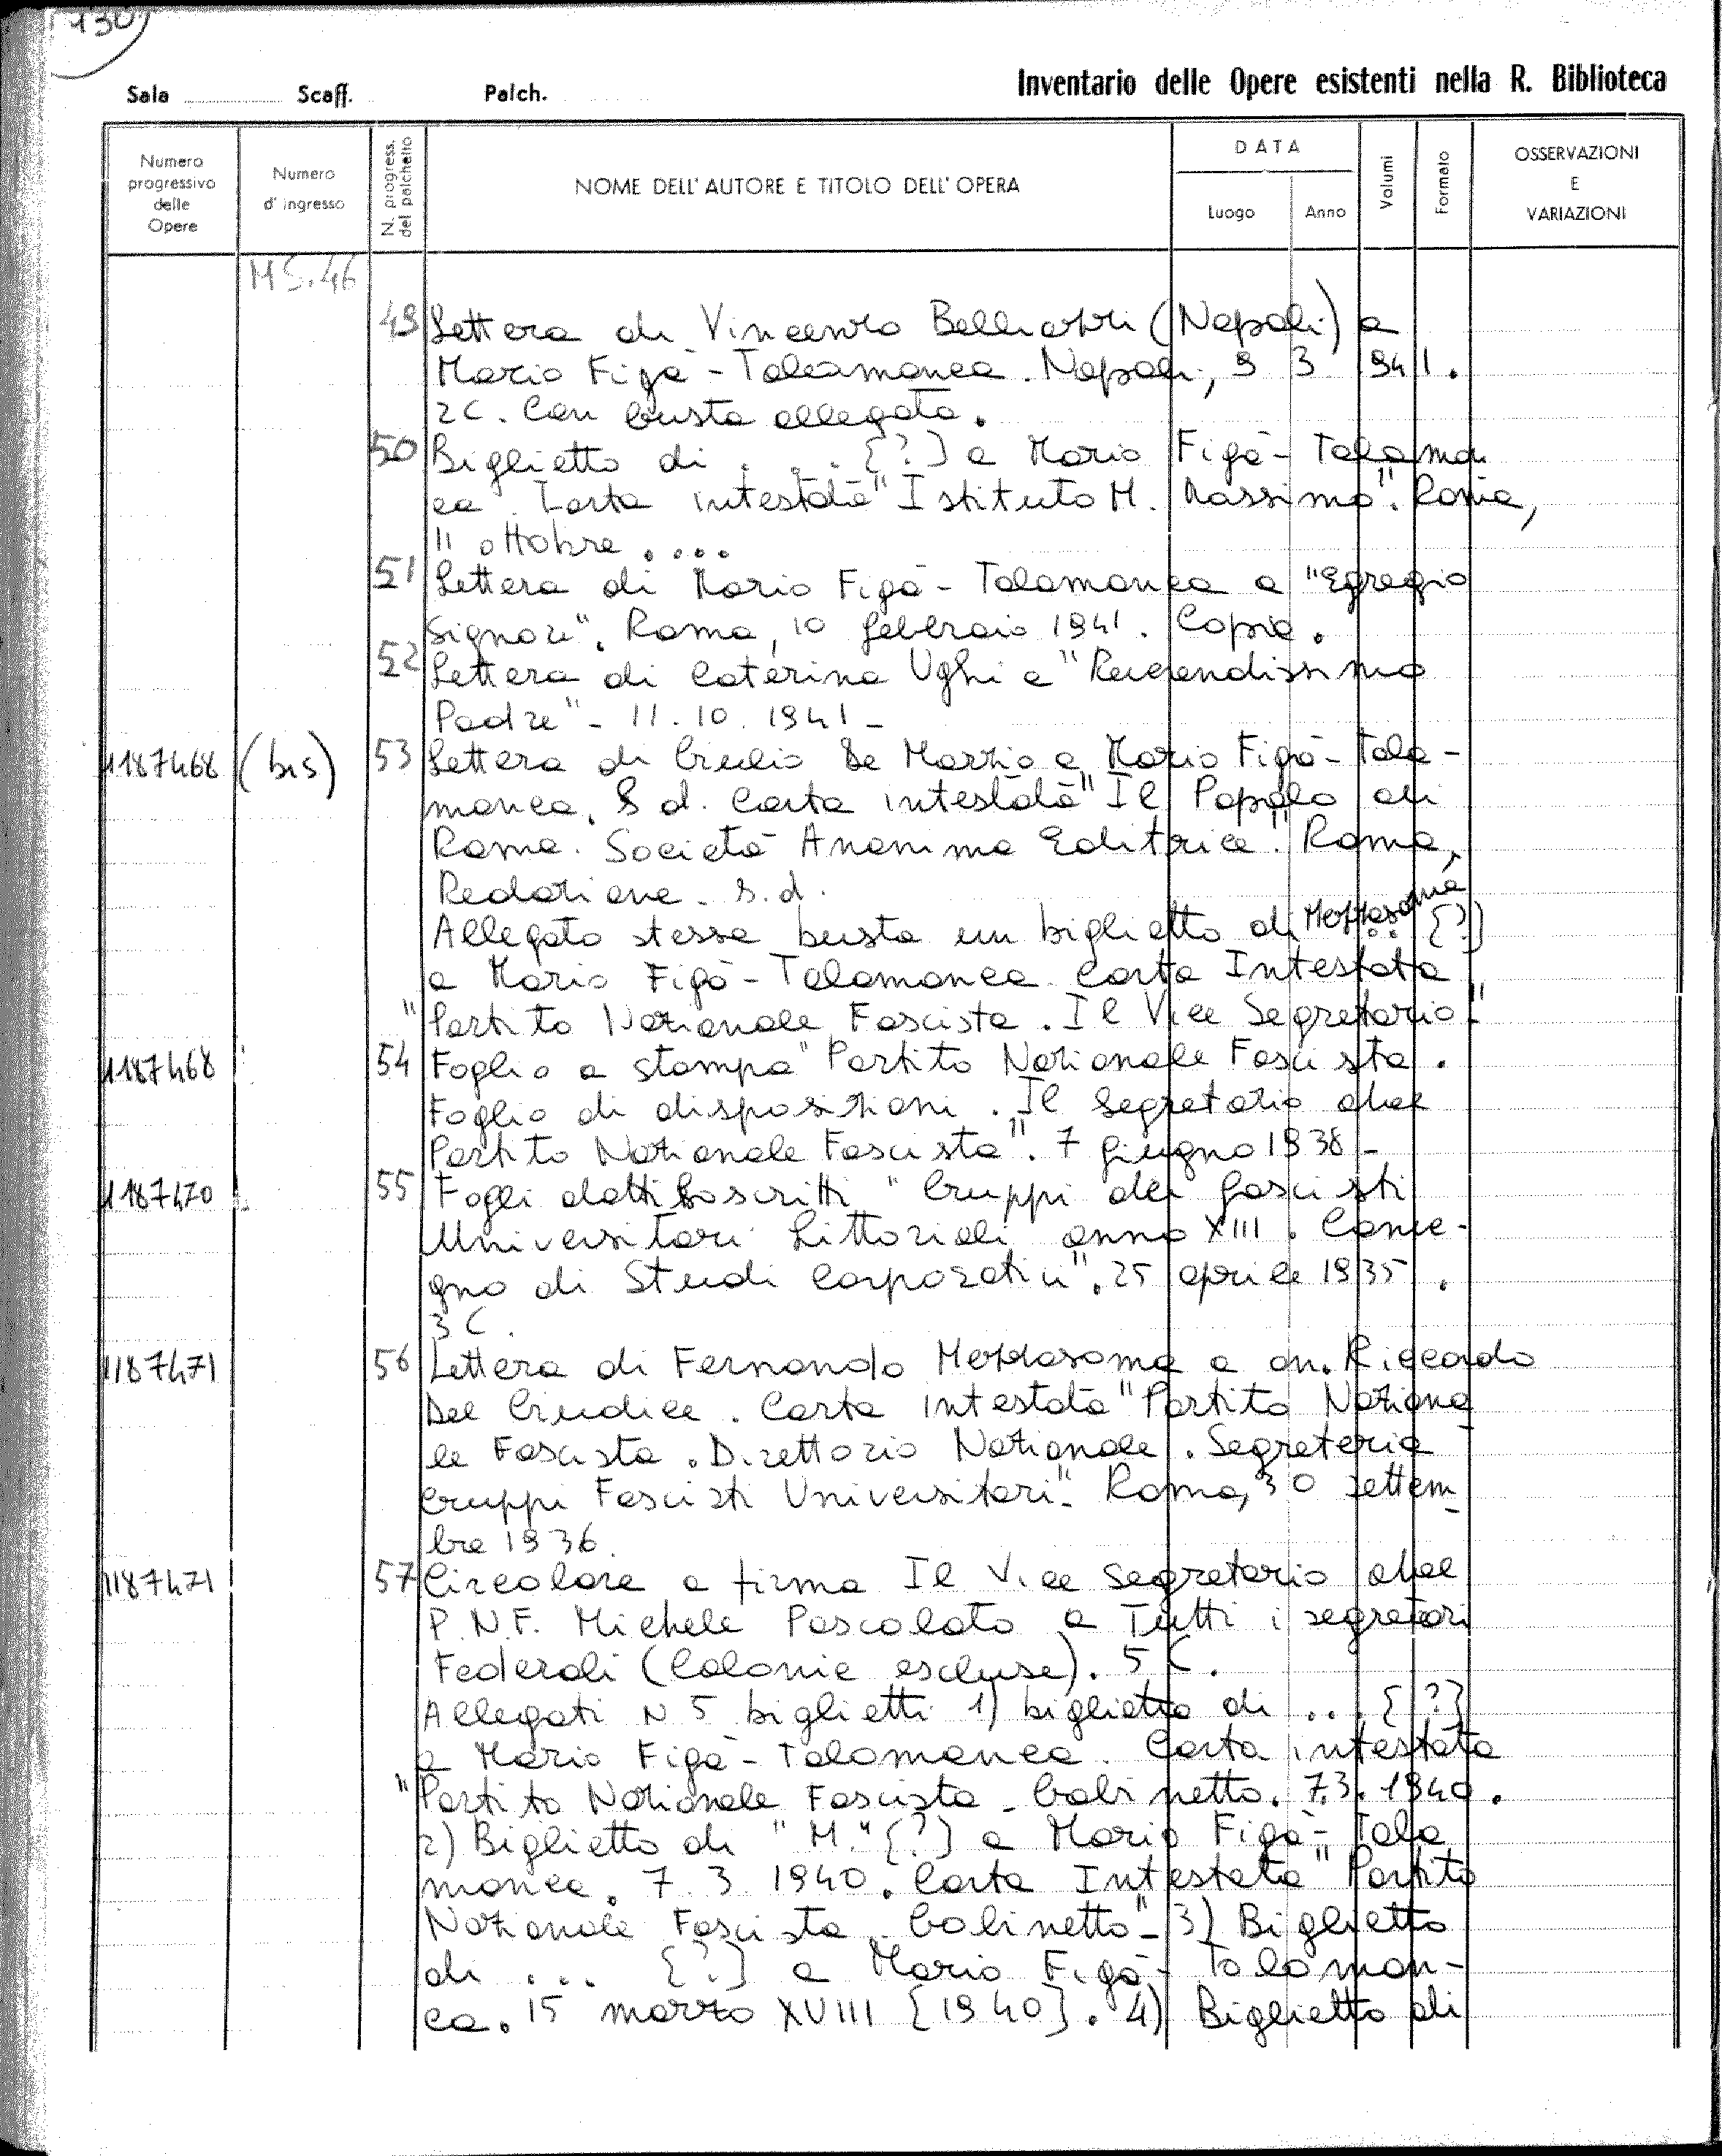 130
Inventario delle Opere esistenti nella R. Biblioteca
Sala Scaff. Palch.
Numero progressivo delle Opere
Numero d'ingresso
N. progress. del palchetto
NOME DELL'AUTORE E TITOLO DELL'OPERA
DATA
Luogo
Anno
Volumi
Formato
OSSERVAZIONI E VARIAZIONI
MS.46
49 Lettera di Vincenzo (Napoli) a
Mario Figà-Talamanca. Napoli, 9 3 941.
2c. Con busta allegata.
50 Biglietto di . . . [?] a Mario Figà-Talaman
ca. Carta intestata "Istituto M. Massimo". Roma,
11 ottobre ....
51 Lettera di Mario Figà-Talamanca a "Egregio
Signore". Roma, 10 febbraio 1941. Copia.
52 Lettera di Caterina Ughi a "Reverendissimo
Padre" - 11.10.1941 -
1187468 (bis) 53 Lettera di Giulio De Marzio a Mario Figà-Tala-
manca. S d. Carta intestata "Il Popolo di
Roma. Società Anonima Editrice". Roma,
Redazione. s.d.
Allegato stessa busta un biglietto di Mezzasoma [?]
a Mario Figà-Talamanca Carta Intestata
"Partito Nazionale Fascista. Il Vice Segretario"
1187468 54 Foglio a stampa "Partito Nazionale Fascista.
Foglio di disposizioni. Il Segretario del
Partito Nazionale Fascista". 7 giugno 1938 -
1187470 55 Fogli dattiloscritti "Gruppi dei fascisti
Universitari Littoriali anno XIII. Conve-
gno di Studi Corporativi". 25 aprile 1935.
3 C.
1187471 56 Lettera di Fernando Mezzasoma a on. Riccardo
Del Giudice. Carta intestata "Partito Naziona
le Fascista. Direttorio Nazionale. Segreteria
Gruppi Fascisti Universitari". Roma, 30 settem_
bre 1936.
1187471 57 Circolare a firma Il Vice segretario del
P.N.F. Michele Pascolato a Tutti i segretari
Federali (Colonie escluse). 5 C.
Allegati N 5 biglietti 1) biglietto di ... [?]
a Mario Figà-Talamanca. Carta intestata
"Partito Nazionale Fascista - Gabinetto. 7.3.1940.
2) Biglietto di "M." [?] a Mario Figà-Tala
manca. 7 3 1940. Carta Intestata "Partito
Nazionale Fascista. Gabinetto" - 3) Biglietto
di ... [?] a Mario Figà-Talaman-
ca. 15 marzo XVIII [1940]. 4) Biglietto di